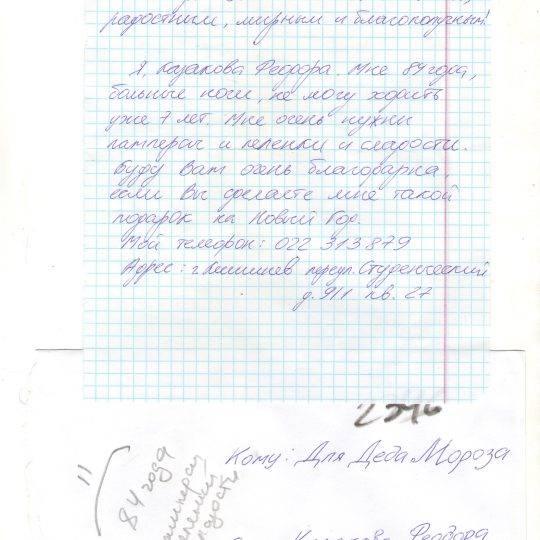 радостным, мирным и благополучным!
Я, Казакова Федора. Мне 84 года,
больные ноги, не могу ходить
уже 7 лет. Мне очень нужны
памперсы и пеленки и сладости.
Буду Вам очень благодарна,
если Вы сделаете мне такой
подарок на Новый Год.
Мой телефон: 022 313879
Адрес: г. Кишинев переул. Студенческий
д. 9/1 кв. 27
Кому: Для Деда Мороза
11
84 года
памперсы
пеленки
сладости
Казакова Федора